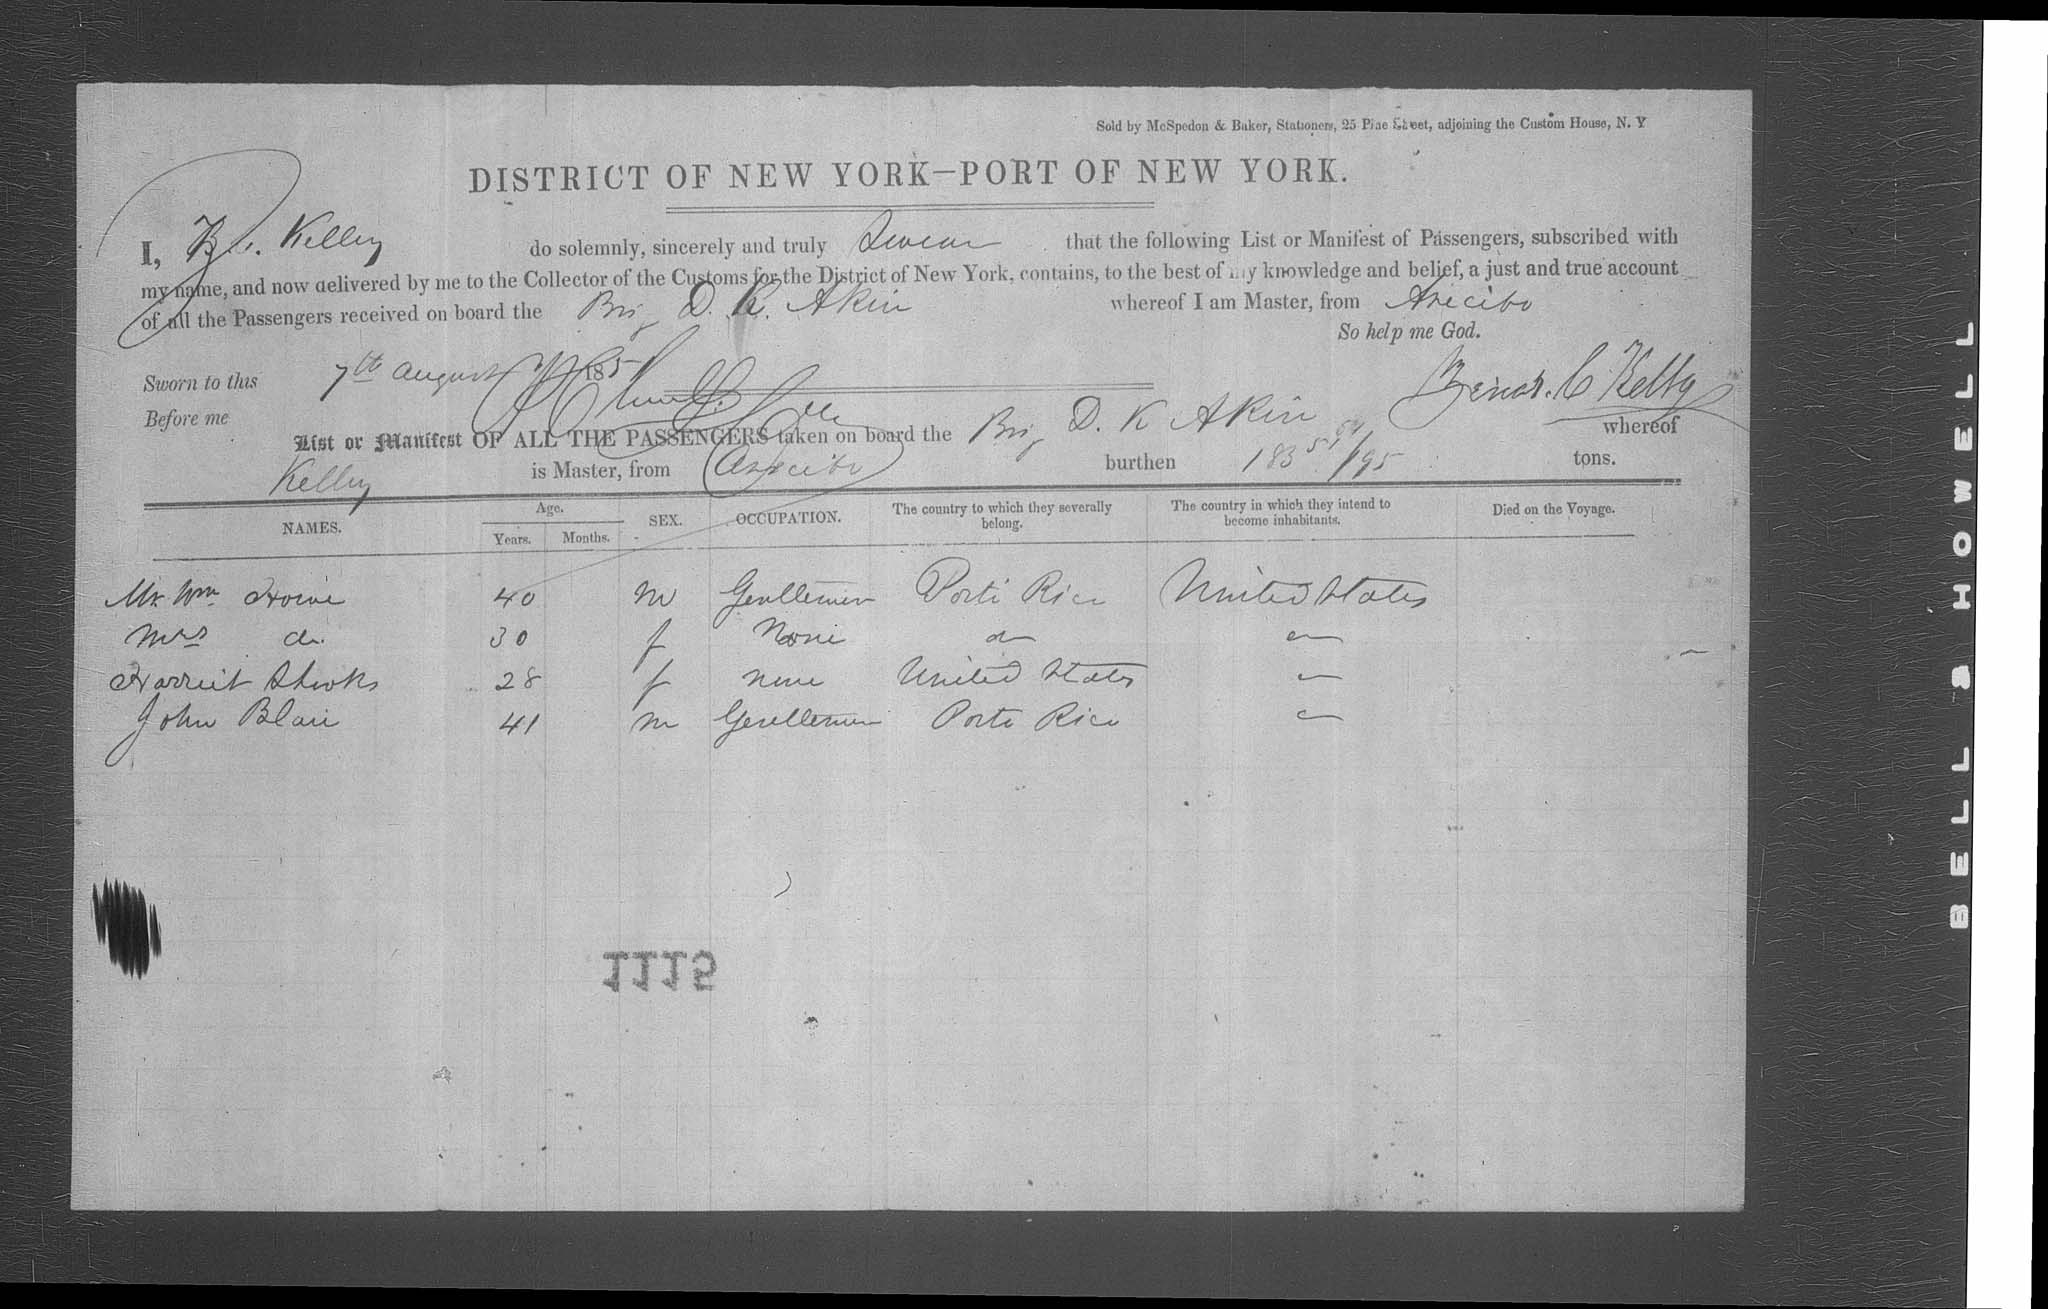 Sold by McSpedon & Baker, Stationers, 25 Pine Street, adjoining the Custom House, N. Y
DISTRICT OF NEW YORK—PORT OF NEW YORK.
I, B. C. Kelley do solemnly, sincerely and truly Swear that the following List or Manifest of Passengers, subscribed with
my name, and now delivered by me to the Collector of the Customs for the District of New York, contains, to the best of my knowledge and belief, a just and true account
of all the Passengers received on board the Brig D. K. Akin whereof I am Master, from Arecibo
So help me God.
Sworn to this 7th August 185
Before me
C Kelley
List or Manifest OF ALL THE PASSENGERS taken on board the Brig D. K Akin whereof
Kelley is Master, from Arecibo burthen 183 /95 tons.
NAMES. Age. Years. Months. SEX. OCCUPATION. The country to which they severally belong. The country in which they intend to become inhabitants. Died on the Voyage.
Mr Wm 40 m Gentleman Porto Rico United States
Mrs do 30 f None do
Harriet 28 f none United States
John Blair 41 m Gentleman Porto Rico
1115
BELL & HOWELL